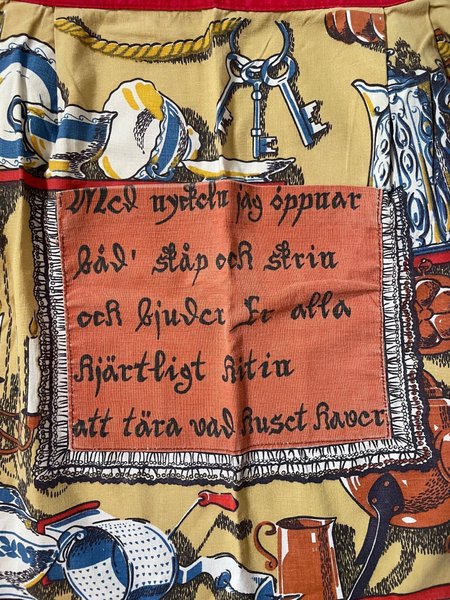 Med nyckeln jag öppnar
båd' skåp och skrin
och bjuder Er alla
hjärtligt hit in
att tära vad huset haver